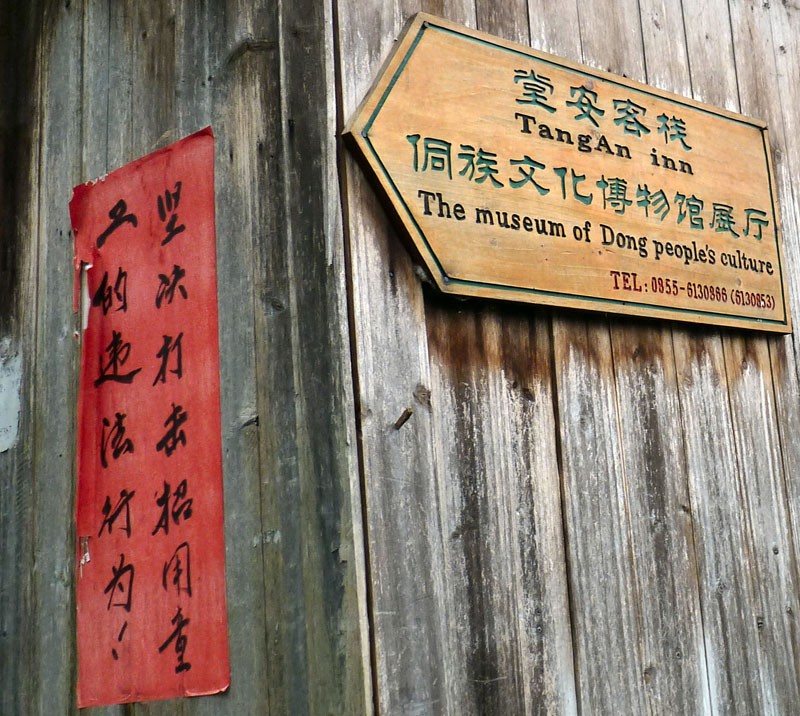 坚决打击招用童
工的违法行为！
堂安客栈
TangAn inn
侗族文化博物馆展厅
The museum of Dong people's culture
TEL: 0855-6130866 (6130853)